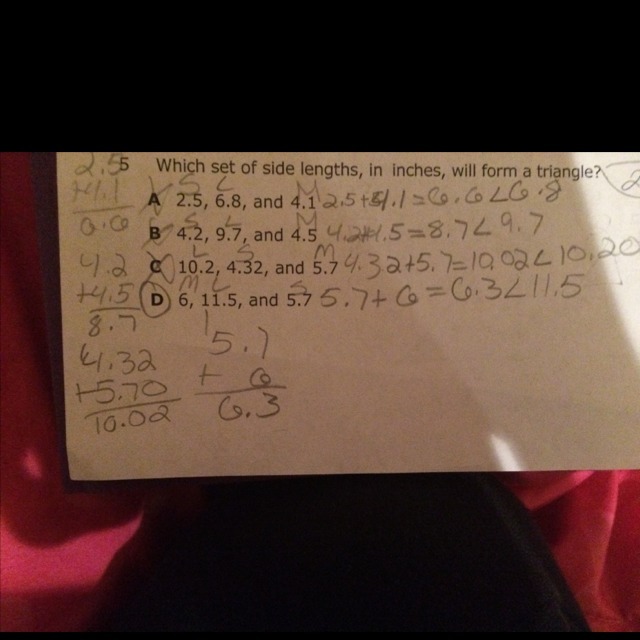 5 Which set of side lengths, in inches, will form a triangle?
S L M
A 2.5, 6.8, and 4.1 2.5+4.1=6.6<6.8
S L M
B 4.2, 9.7, and 4.5 4.2+4.5=8.7<9.7
L S M
C 10.2, 4.32, and 5.7 4.32+5.7=10.02<10.20
M L S
D 6, 11.5, and 5.7 5.7+6=6.3<11.5
2.5
+4.1
6.6
4.2
+4.5
8.7
4.32
+5.70
10.02
1
5.7
+ 6
6.3